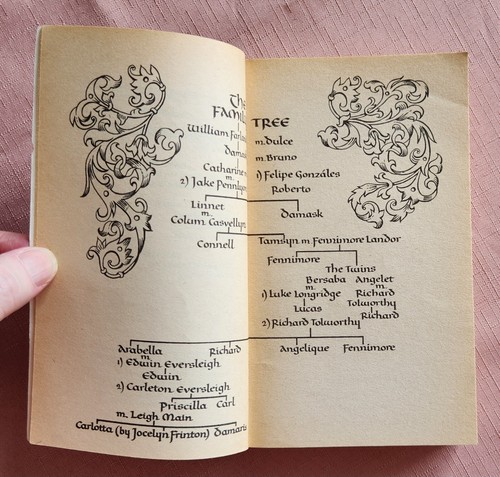 The
TREE
William m. Dulce
m. Bruno
Catharine 1) Felipe Gonzáles
m.
2) Jake Roberto
Linnet Damask
m.
Colum Casvellyn
Connell Tamsyn m. Fennimore Landor
Fennimore
The Twins
Bersaba Angelet
m. m.
1) Luke Longridge Richard
Lucas Tolworthy
Richard
2) Richard Tolworthy
Arabella Richard Angelique Fennimore
m.
1) Edwin Eversleigh
Edwin
2) Carleton Eversleigh
Priscilla Carl
m. Leigh Main
Carlotta (by Jocelyn Frinton) Damaris